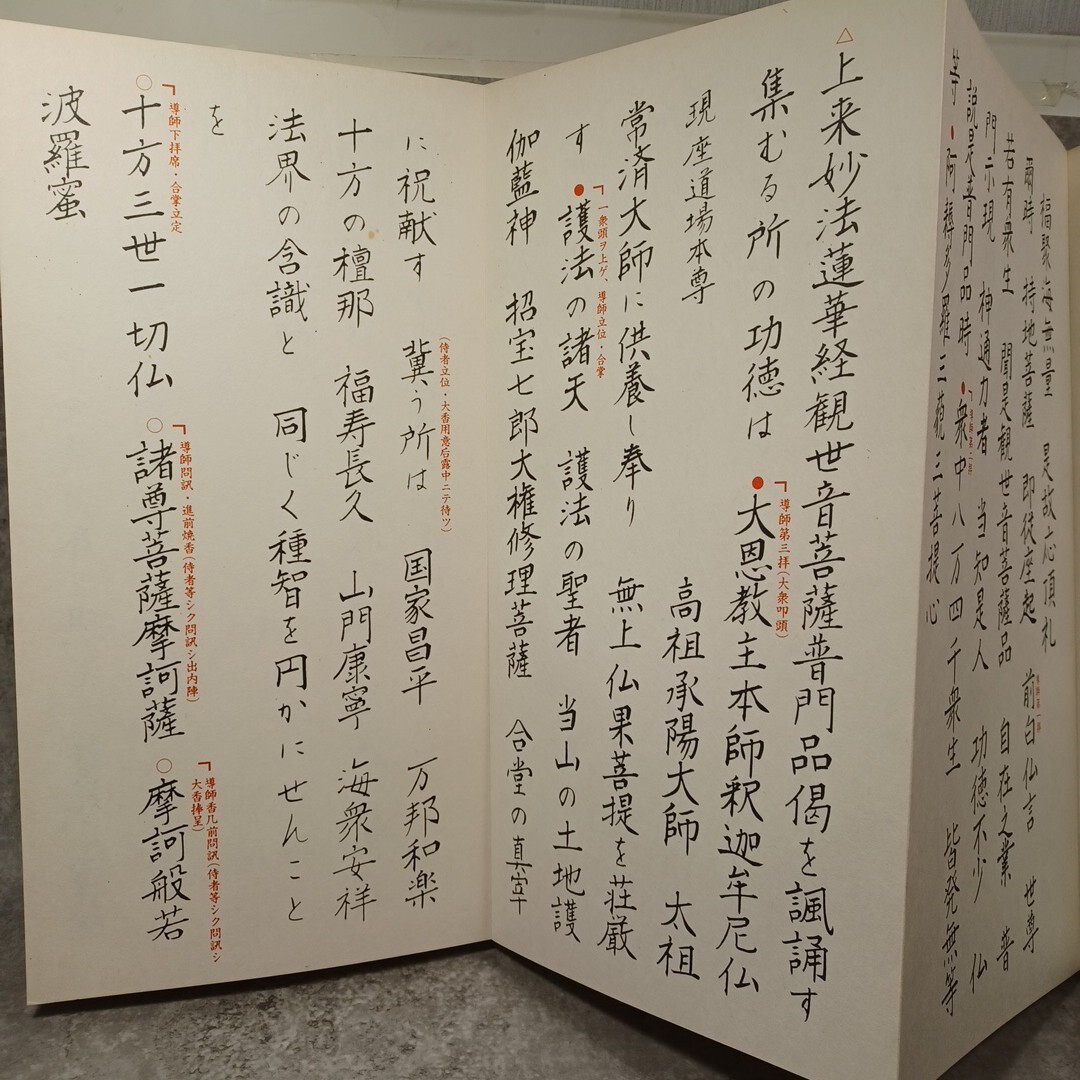 福聚海無量 是故応頂礼
爾時 持地菩薩 即従座起 前白仏言 世尊
若有衆生 聞是観世音菩薩品 自在之業 普
門示現 神通力者 当知是人 功徳不少 仏
説是普門品時 ●衆中八万四千衆生 皆発無等
等 ●阿耨多羅三藐三菩提心
△上来妙法蓮華経観世音菩薩普門品偈を諷誦す
集むる所の功徳は ●大恩教主本師釈迦牟尼仏
導師第三拝(大衆叩頭)
現座道場本尊 高祖承陽大師 太祖
常済大師に供養し奉り 無上仏果菩提を荘厳
一衆頭ヲ上ゲ、導師立位・合掌
す ●護法の諸天 護法の聖者 当山の土地護
伽藍神 招宝七郎大権修理菩薩 合堂の真宰
(侍者立位・大香用意后露中ニテ待ツ)
に祝献す 冀う所は 国家昌平 万邦和楽
十方の檀那 福寿長久 山門康寧 海衆安祥
法界の含識と 同じく種智を円かにせんこと
を
導師下拝席・合掌立定
導師問訊・進前焼香(侍者等シク問訊シ出内陣)
導師香几前問訊(侍者等シク問訊シ
大香捧呈)
○十方三世一切仏 ○諸尊菩薩摩訶薩 ○摩訶般若
波羅蜜